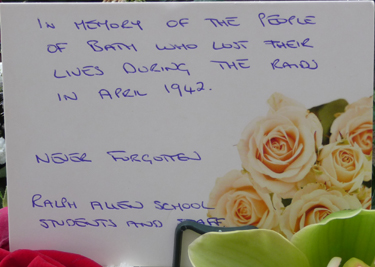 IN MEMORY OF THE PEOPLE
OF BATH WHO LOST THEIR
LIVES DURING THE RAIDS
IN APRIL 1942.
NEVER FORGOTTEN
RALPH ALLEN SCHOOL
STUDENTS AND STAFF